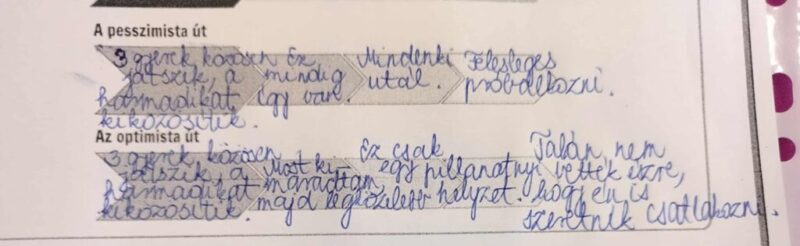 A pesszimista út
3 gyerek közösen játszik, a harmadikat kiközösítik.
Ez mindig így van.
Mindenki utál.
Felesleges próbálkozni.
Az optimista út
3 gyerek közösen játszik, a harmadikat kiközösítik.
Most kimaradtam, majd legközelebb
Ez csak egy pillanatnyi helyzet.
Talán nem vették észre, hogy én is szeretnék csatlakozni.